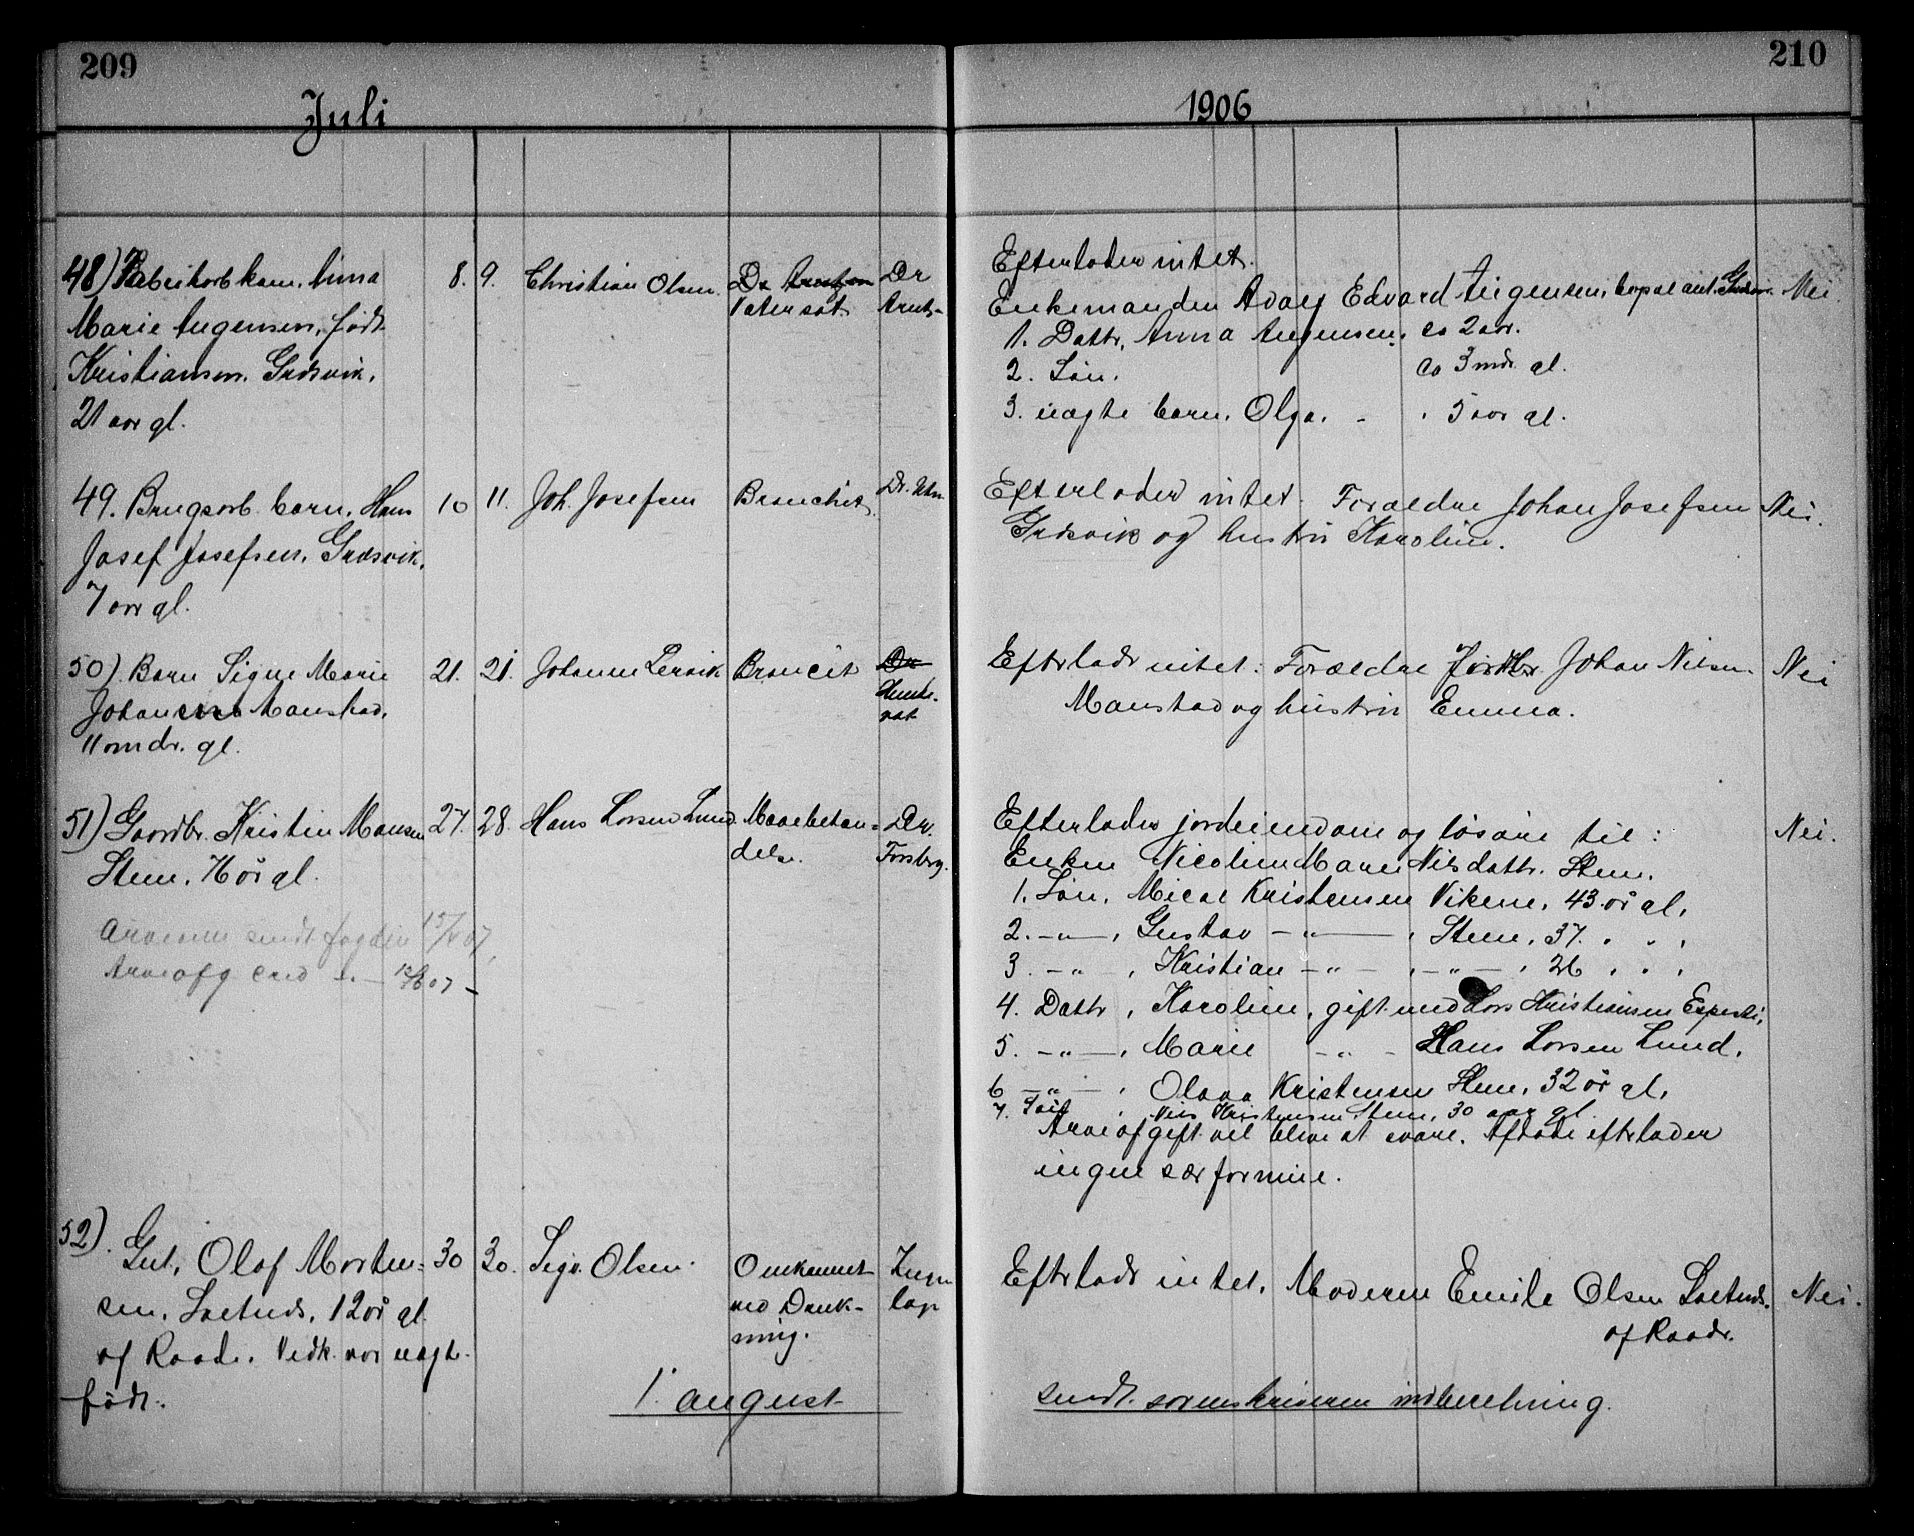 209
210
Juli
1906
48) Fabrikarb kone, Anna
Marie Augensen, født
Kristiansen, Gresvik,
21 aar gl.
8. 9. Christian Olsen
Vatersot
Dr
Arntz-
Efterlader intet.
Enkemanden Edvard Augensen, Nei.
1. Dattr, Anna Augensen, ca 2 aar.
2. Søn, ca 3 mdr. gl.
3. uægte barn, Olga, - , 5 aar gl.
49. Brugsarb. barn, Hans
Josef Josefsen, Gresvik,
7 aar gl.
10 11. Joh. Josefsen Bronchit
Efterlader intet. Forældre Johan Josefsen Nei.
Gresvik og hustru Karoline.
50). Barn Signe Marie
Johansen Maustad,
11 mdr. gl.
21. 21. Johannes Lervik Broncit Dr
Efterlader intet. Forældre Johan Nilsen Nei
Maustad og hustru Emma.
51) Gaardbr. Kristen Mansen
Stene,
27. 28. Hans Larsen Lund Mavebetæn-
delse.
Dr.
Forsberg.
Efterlader jordeiendom og løsøre til: Nei.
Enken Nicoline Marie Nilsdattr. Stene.
1. Søn, Kristensen Vikene, 43 år gl.
2. -"- , Gustav -"- , Stene, 37. " "
3. -"- , Kristian -"- , -"- , 26 " "
4. Dattr , Karoline, gift med Lars Kristiansen
5. -"- , Marie -"- Hans Larsen Lund.
6 -"- , Olava Kristensen Stene, 32 år gl.
7. Søn , Nils Kristensen Stene, 30 aar gl.
Arveafgift vil blive at svare. Afdøde efterlader
ingen særformue.
sendt fogden 15/ 07,
Arveafg 07 -
52).
Gut, Olaf Morten-
sen, 12 år gl.
af Raade. Vedk. var uægte
født.
30 30. Sigv. Olsen Omkommet
ved Druk-
ning.
Ingen
læge
Efterlader intet. Moderen Emile Olsen Nei.
af Raade.
1. august
sendt sorenskriveren indberetning.